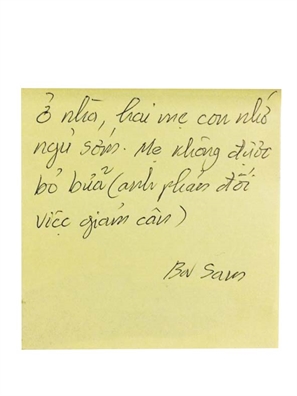 Ở nhà, hai mẹ con nhớ
ngủ sớm. Mẹ không được
bỏ bữa (anh phản đối
việc giảm cân)
Bơ Sam